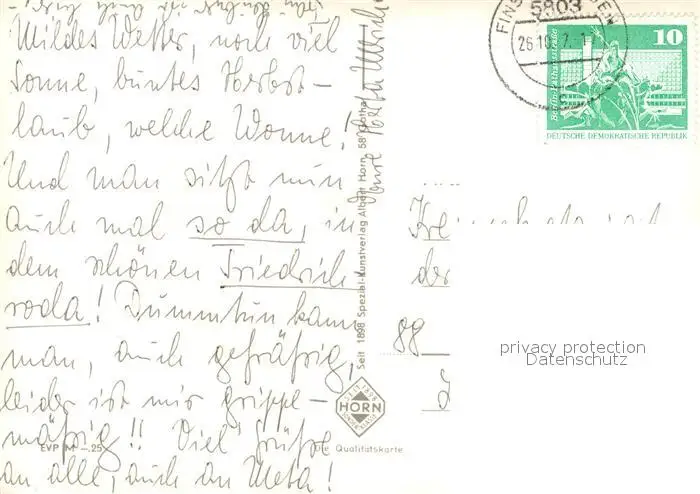 Mildes Wetter, noch viel
Sonne, buntes Herbst-
laub, welche Wonne!
Und man sitzt nun
auch mal so da, in
dem schönen Friedrich
roda! Dummtun kann
man, auch gefräßig,
leider ist mir grippe-
mäßig!! Viel Grüße
an alle, auch an Meta!
EVP M -.25
Seit 1898 Spezial-Kunstverlag Albert Horn, 58 Gotha
SEIT 1898
HORN
Die Qualitätskarte
5803
26.10.
10
Berlin-Rathausstraße
DEUTSCHE DEMOKRATISCHE REPUBLIK
der
88
privacy protection
Datenschutz